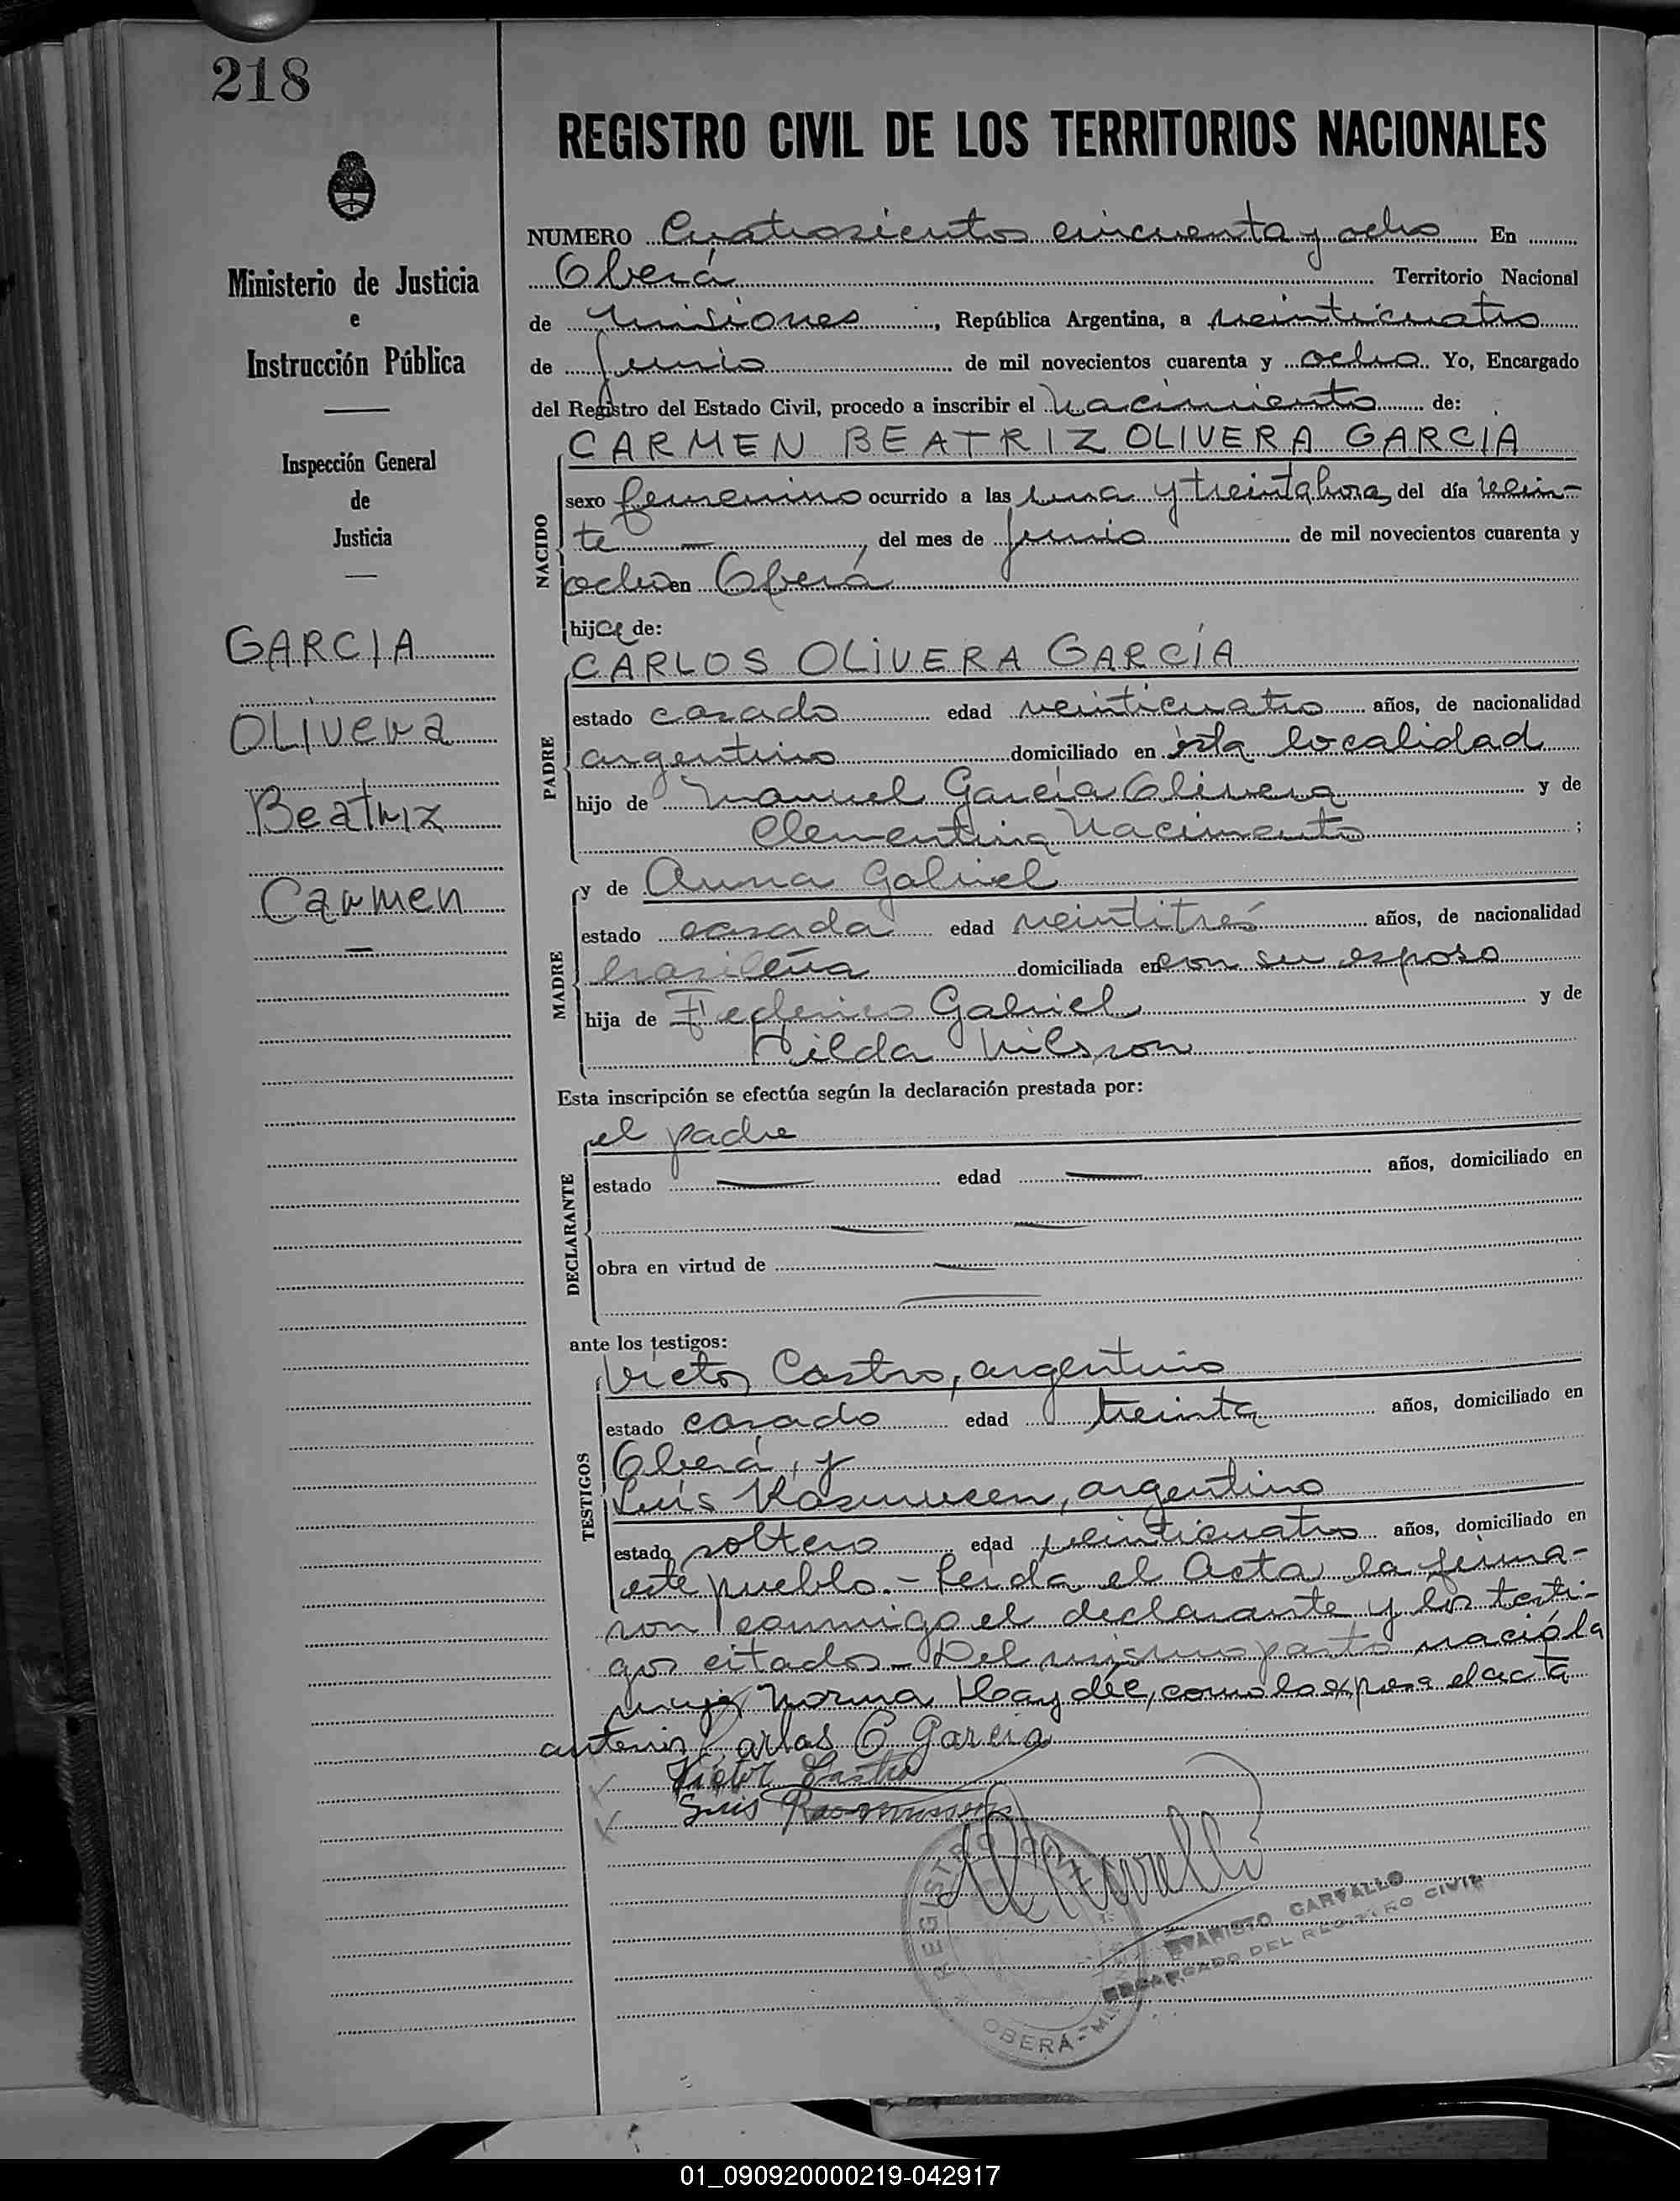 218
REGISTRO CIVIL DE LOS TERRITORIOS NACIONALES
Ministerio de Justicia
e
Instrucción Pública
Inspección General
de
Justicia
GARCIA
OLIVERA
Beatriz
Carmen
NUMERO Cuatrosientos cincuenta y ocho En
Oberá Territorio Nacional
de Misiones, República Argentina, a veinticuatro
de junio de mil novecientos cuarenta y ocho Yo, Encargado
del Registro del Estado Civil, procedo a inscribir el nacimiento de:
NACIDO
CARMEN BEATRIZ OLIVERA GARCIA
sexo femenino ocurrido a las una y treinta horas del día vein-
te - , del mes de junio de mil novecientos cuarenta y
ocho en Oberá
hija de:
PADRE
CARLOS OLIVERA GARCÍA
estado casado edad veinticuatro años, de nacionalidad
argentino domiciliado en ésta localidad
hijo de Manuel García Olivera y de
Clementina Nacimento ;
MADRE
y de Anna Gabriel
estado casada edad veintitrés años, de nacionalidad
brasileña domiciliada en con su esposo
hija de Federico Gabriel y de
Hilda Nilsson
Esta inscripción se efectúa según la declaración prestada por:
DECLARANTE
el padre
estado — edad — años, domiciliado en
obra en virtud de
ante los testigos:
TESTIGOS
Victor Castro, argentino
estado casado edad treinta años, domiciliado en
Oberá, y
Luis Rasmussen, argentino
estado soltero edad veinticuatro años, domiciliado en
este pueblo.- Leida el Acta la firma-
ron conmigo el declarante y los testi-
gos citados - Del mismo parto nació la
mujer Norma Haydée, como lo expresa el acta
anterior Carlos O Garcia
Victor Castro
Luis Rasmussen
REGISTRO
OBERA - M
EVARISTO CARVALLO
ENCARGADO DEL REGISTRO CIVIL
01_090920000219-042917